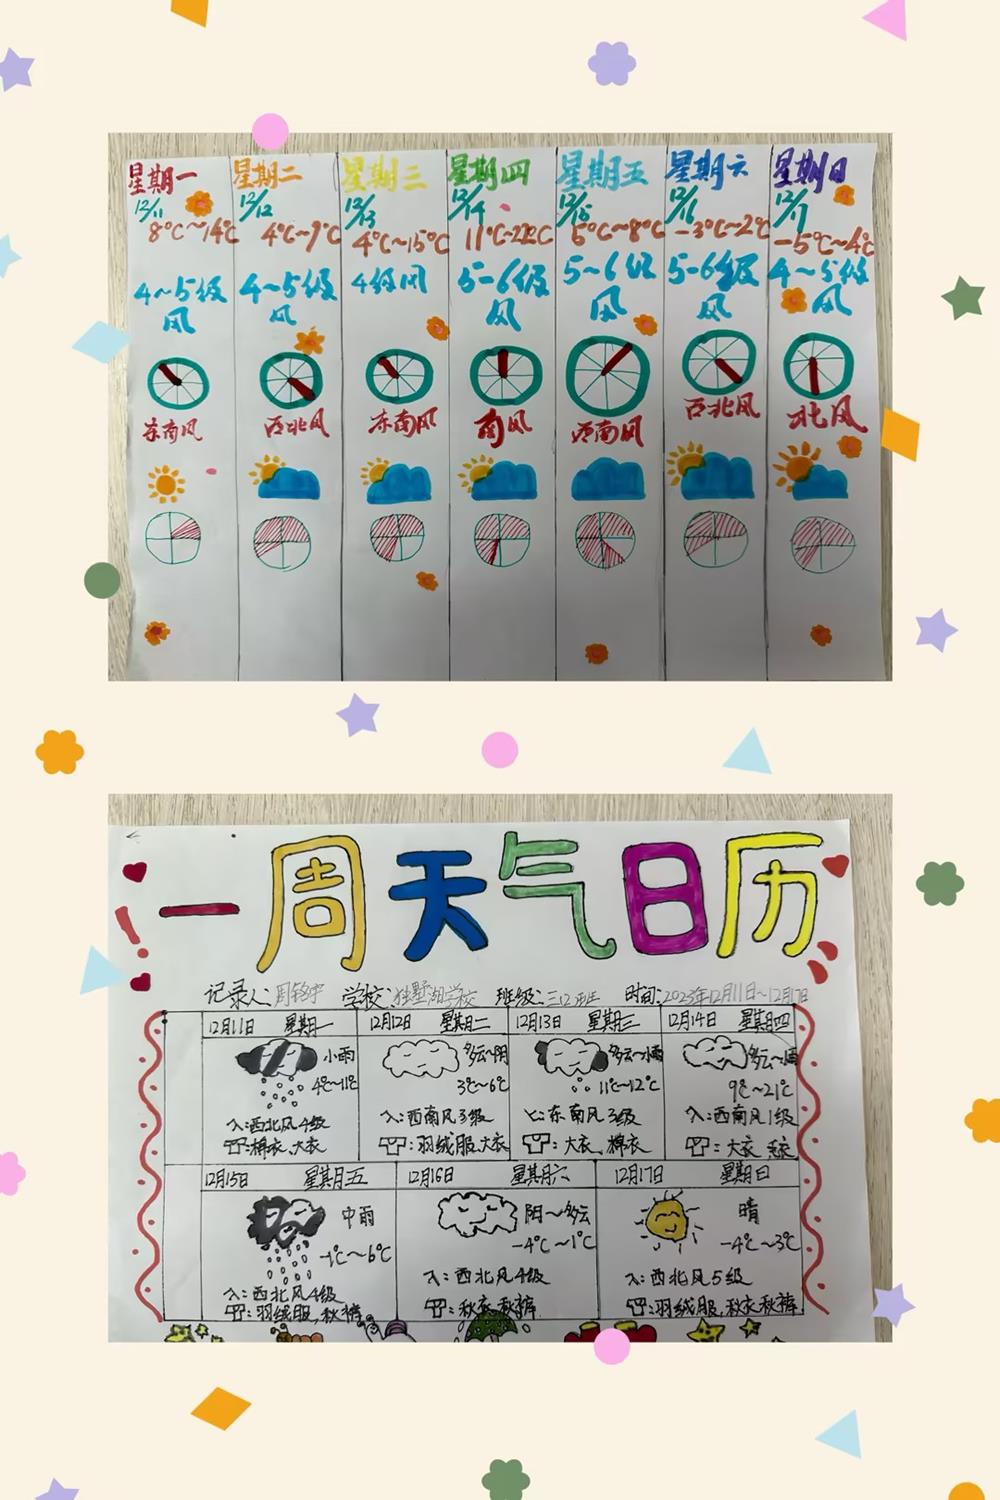 星期一 星期二 星期三 星期四 星期五 星期六 星期日
12/11 12/12 12/13 12/14 12/15 12/16 12/17
8℃~14℃ 4℃~9℃ 4℃~15℃ 11℃~22℃ 6℃~8℃ -3℃~2℃ -5℃~4℃
4~5级风 4~5级风 4级风 5-6级风 5~6级风 5-6级风 4~5级风
东南风 西北风 东南风 南风 西南风 西北风 北风
一周天气日历
记录人: 学校:独墅湖学校 班级:三12班 时间:2023年12月11日~12月17日
12月11日 星期一 12月12日 星期二 12月13日 星期三 12月14日 星期四
小雨 多云~阴 多云~小雨
4℃~11℃ 3℃~6℃ 11℃~12℃ 9℃~21℃
西北风4级 :西南风3级 :东南风3级 :西南风1级
:棉衣,大衣 :羽绒服,大衣 :大衣,棉衣 :大衣
12月15日 星期五 12月16日 星期六 12月17日 星期日
中雨 阴~多云 晴
-1℃~6℃ -4℃~1℃ -4℃~3℃
:西北风4级 :西北风4级 :西北风5级
:羽绒服,秋裤 :秋衣秋裤 :羽绒服,秋衣秋裤